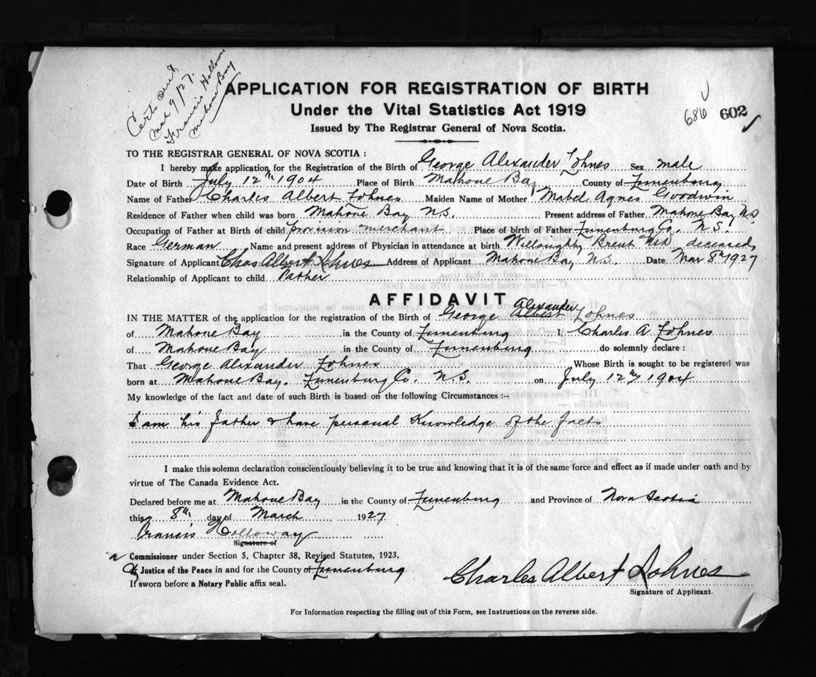 Cert sent
Mar 9/27.
Francis Holloway
Mahone Bay
APPLICATION FOR REGISTRATION OF BIRTH
Under the Vital Statistics Act 1919
Issued by The Registrar General of Nova Scotia.
686 602
TO THE REGISTRAR GENERAL OF NOVA SCOTIA :
I hereby make application for the Registration of the Birth of George Alexander Lohnes Sex male
Date of Birth July 12th 1904 Place of Birth Mahone Bay County of Lunenburg
Name of Father Charles Albert Lohnes Maiden Name of Mother Mabel Agnes Goodwin
Residence of Father when child was born Mahone Bay N.S. Present address of Father Mahone Bay NS
Occupation of Father at Birth of child provision merchant Place of birth of Father Lunenburg Co. N.S.
Race German Name and present address of Physician in attendance at birth Willoughby deceased
Signature of Applicant Chas Albert Lohnes Address of Applicant Mahone Bay N.S. Date Mar 8th 1927
Relationship of Applicant to child Father
AFFIDAVIT
Alexander
IN THE MATTER of the application for the registration of the Birth of George Albert Lohnes
of Mahone Bay in the County of Lunenburg I, Charles A Lohnes
of Mahone Bay in the County of Lunenburg do solemnly declare :
That George Alexander Lohnes Whose Birth is sought to be registered was
born at Mahone Bay. Lunenburg Co. N.S. on July 12th 1904
My knowledge of the fact and date of such Birth is based on the following Circumstances :-
I am his father & have personal Knowledge of the facts
I make this solemn declaration conscientiously believing it to be true and knowing that it is of the same force and effect as if made under oath and by
virtue of The Canada Evidence Act.
Declared before me at Mahone Bay in the County of Lunenburg and Province of Nova Scotia
this 8th day of March 1927
Francis Holloway
Signature of
a Commissioner under Section 5, Chapter 38, Revised Statutes, 1923.
Justice of the Peace in and for the County of Lunenburg
If sworn before a Notary Public affix seal.
Charles Albert Lohnes
Signature of Applicant.
For Information respecting the filling out of this Form, see Instructions on the reverse side.